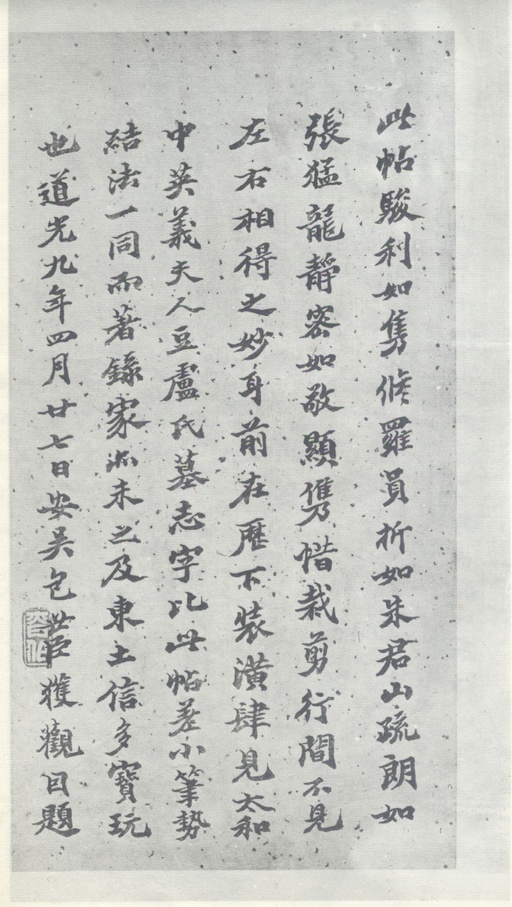 此帖駿利如雋脩羅員折如朱君山疏朗如
張猛龍靜密如敬顯儁惜裁剪行間不見
左右相得之妙耳前在歷下裝潢肆見太和
中英義夫人豆盧氏墓志字比此帖差小筆勢
結法一同而著錄家尗未之及東土信多寶玩
也道光九年四月廿七日安吳包世臣獲觀因題